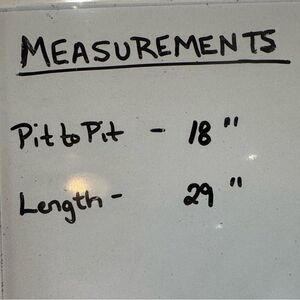 MEASUREMENTS
Pit to Pit - 18 "
Length - 29 "